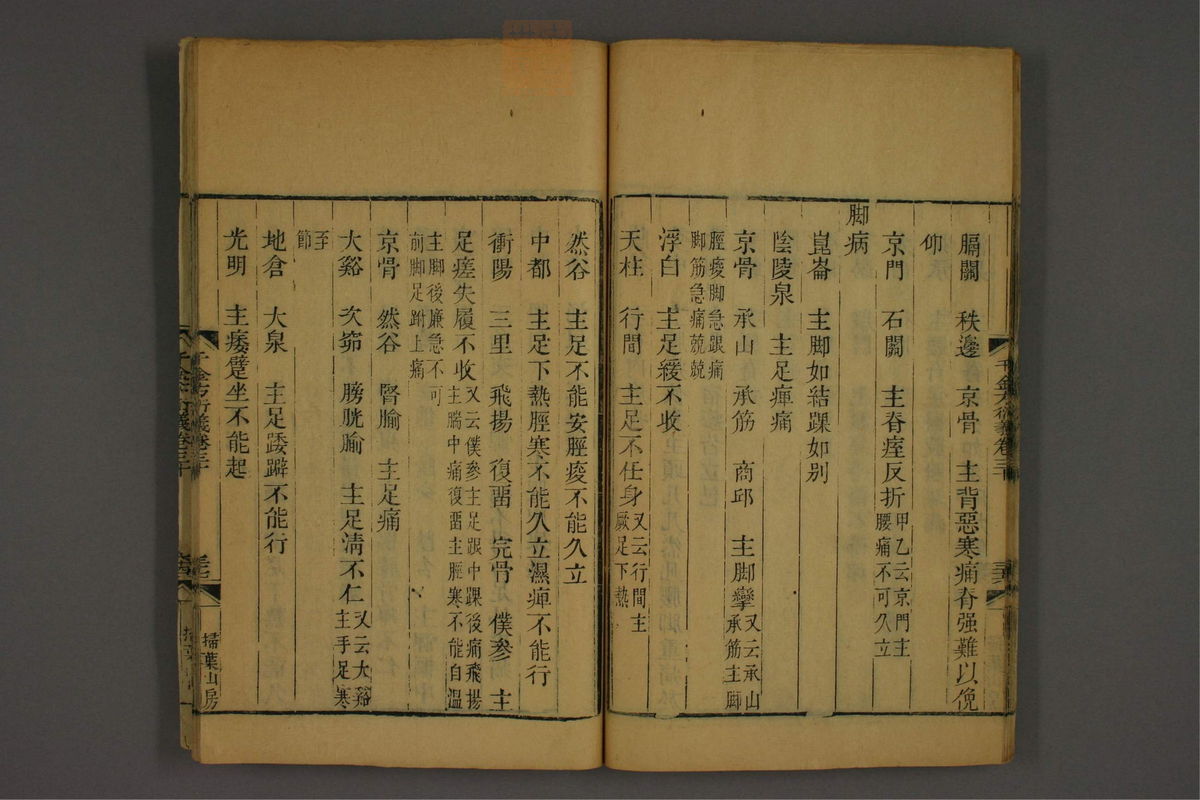 膈關 秩邊 京骨 主背惡寒痛脊强難以俛
仰
京門 石關 主脊痓反折甲乙云京門主
腰痛不可久立
脚病
崑崙 主脚如結踝如别
陰陵泉 主足痺痛
京骨 承山 承筋 商邱 主脚攣又云承山
承筋主脚
脛痠脚急跟痛
脚筋急痛兢兢
浮白 主足緩不收
天柱 行間 主足不任身又云行間主
厥足下熱
然谷 主足不能安脛痠不能久立
中都 主足下熱脛寒不能久立濕痺不能行
衝陽 三里 飛揚 復畱 完骨 僕參 主
足痿失履不收又云僕參主足跟中踝後痛飛揚
主腨中痛復畱主脛寒不能自温
主脚後廉急不可
前脚足跗上痛
京骨 然谷 腎腧 主足痛
大谿 次窌 膀胱腧 主足清不仁又云大谿
主手足寒
至
節
地倉 大泉 主足躄躃不能行
光明 主痿躄坐不能起
千金方衍義卷三十
掃葉山房